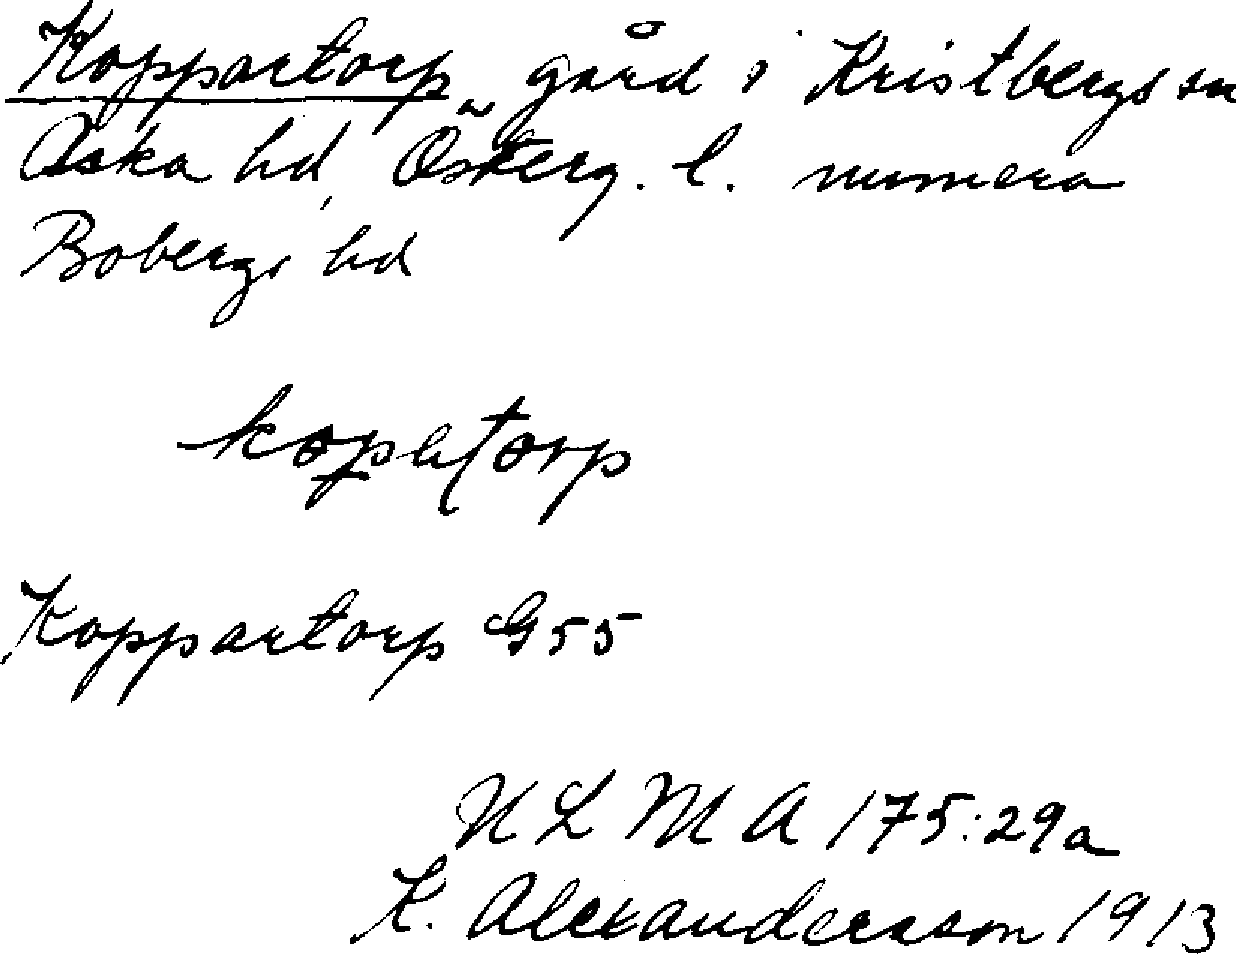 Koppartorp, gård i Kristbergs sn
Aska hd, Österg. l. numera
Bobergs hd
kopatorp
Koppartorp G55
ULMA 175:29a
K. Alexandersson 1913